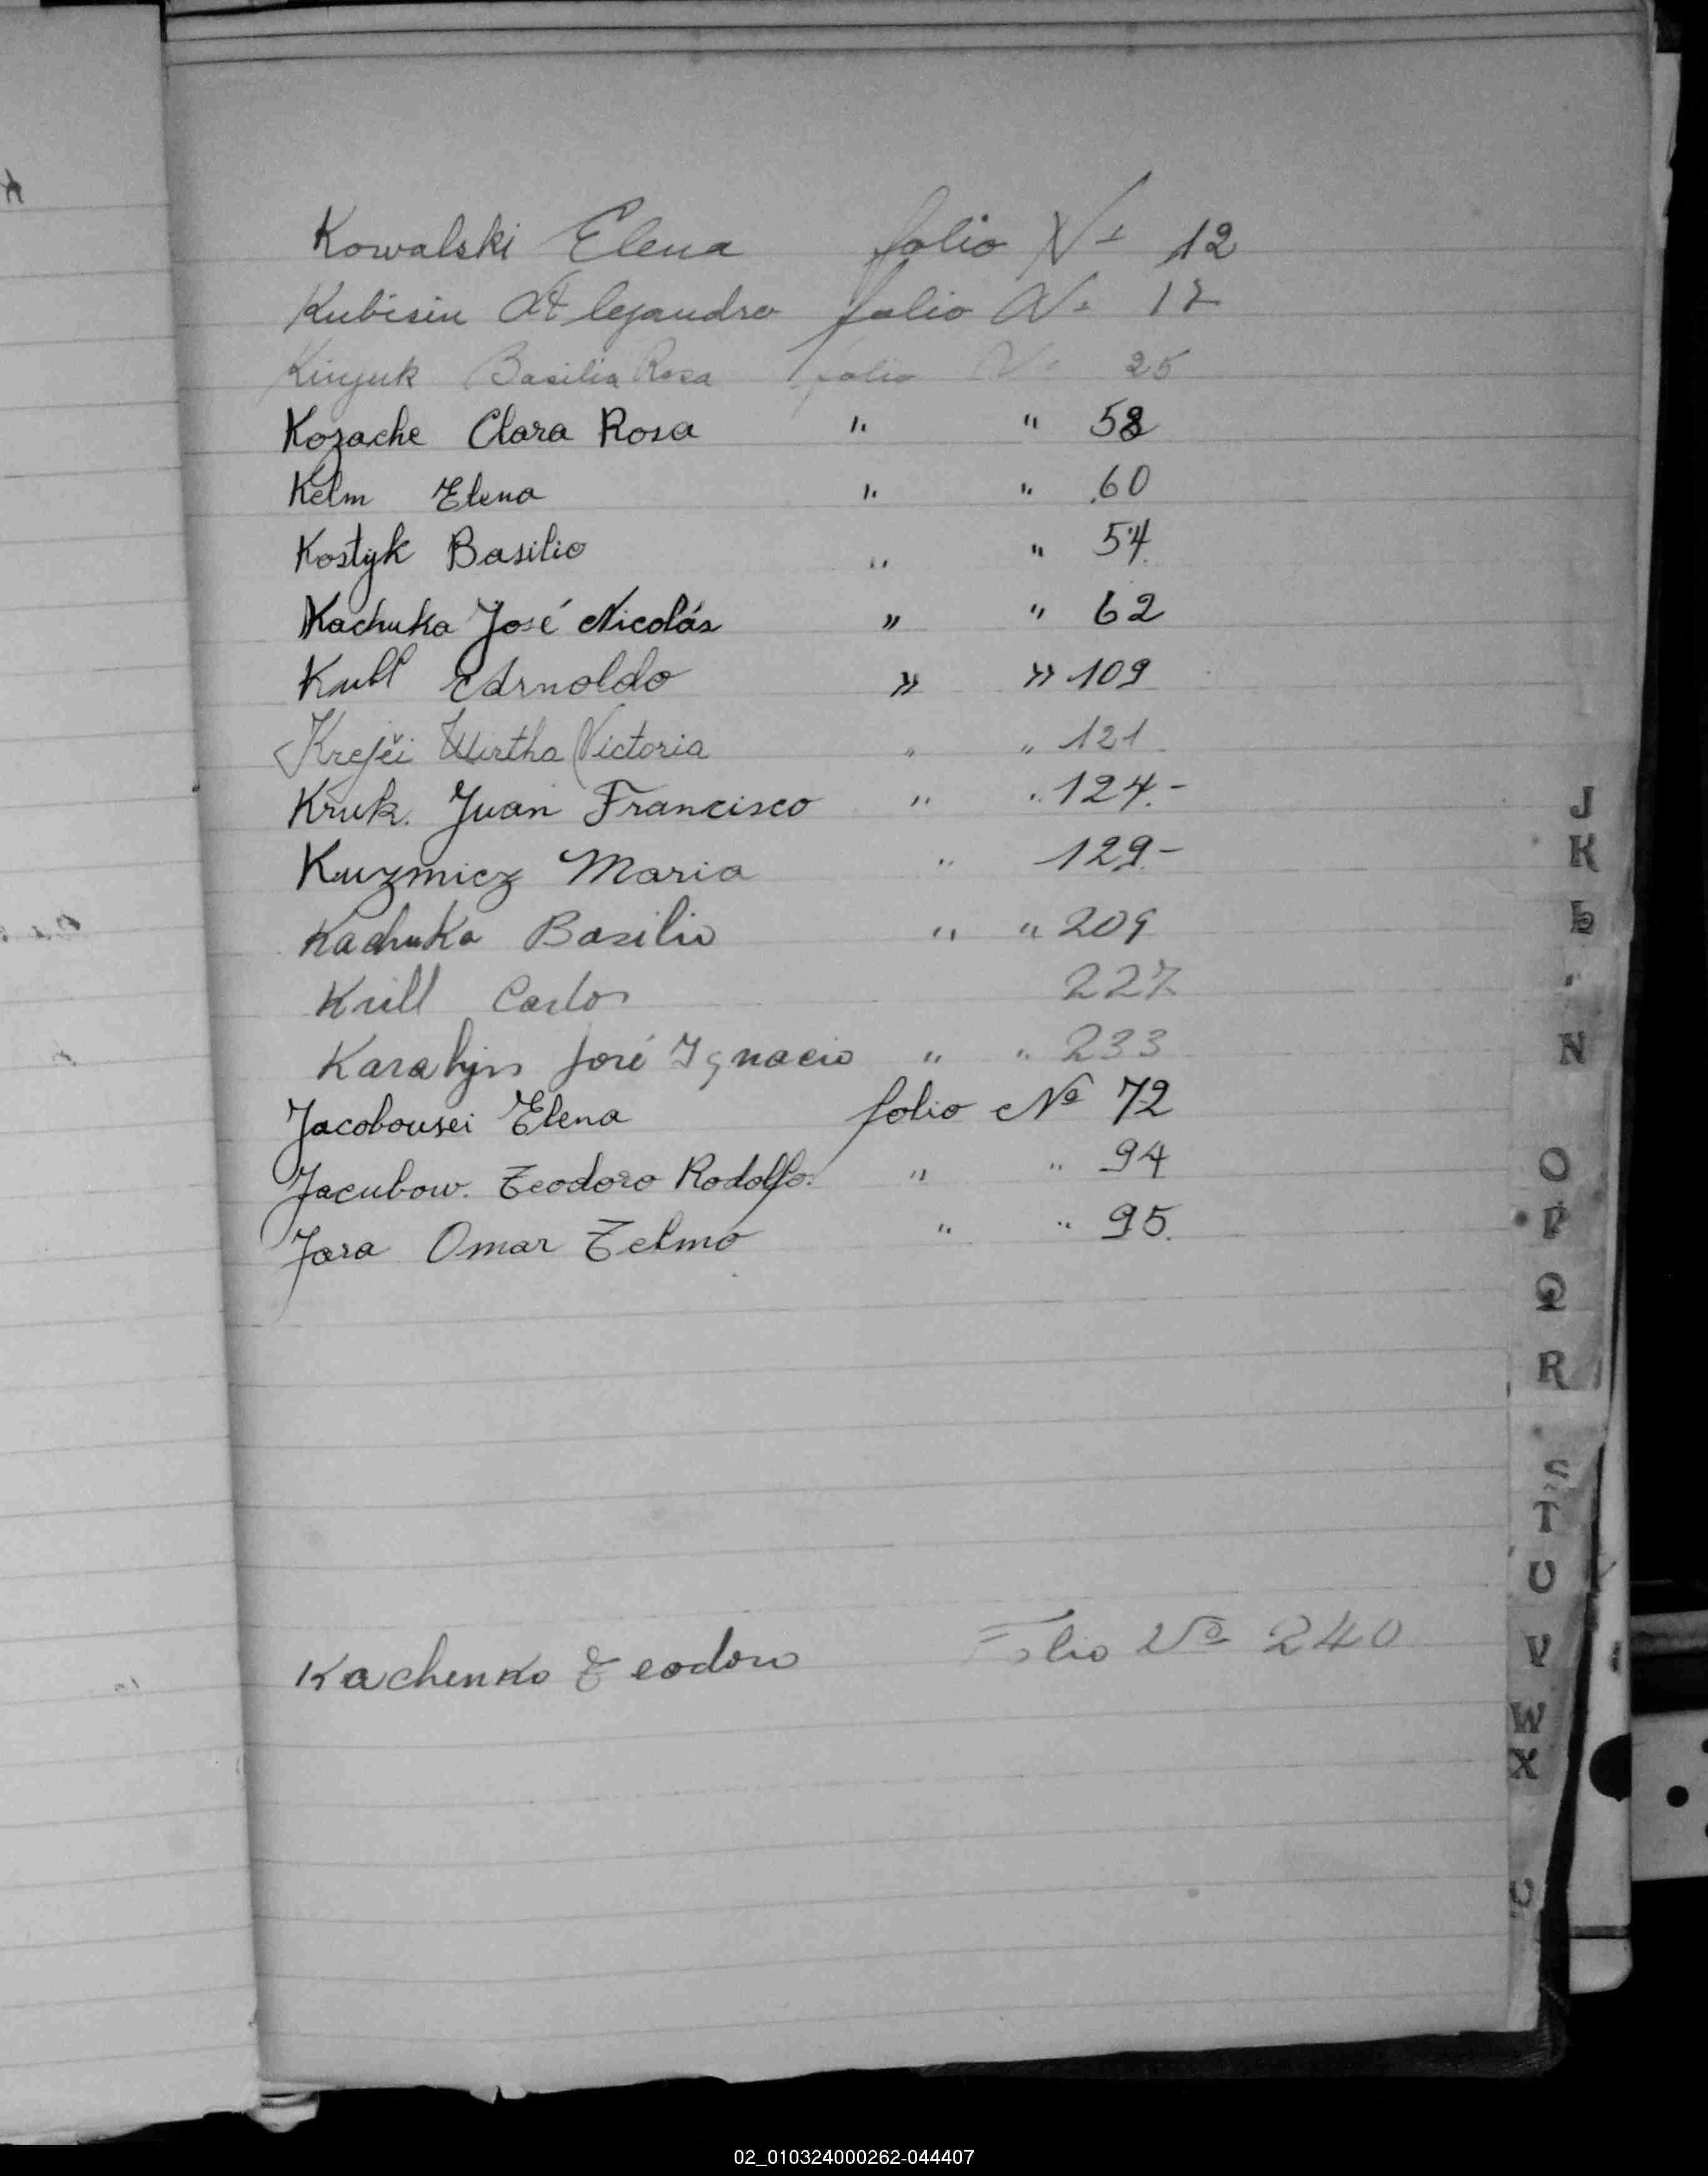 Kowalski Elena folio Nº 12
Kubisiu Alejandro folio Nº 17
Kinyuk Basilia Rosa folio Nº 25
Kozache Clara Rosa " " 58
Kelm Elena " " 60
Kostyk Basilio " " 54.
Kachuka José Nicolás " " 62
Krull Arnoldo » » 109
Krejči Mirtha Victoria " " 121
Kruk. Juan Francisco " " 124.-
Kuzmicz Maria " 129.-
Kachuka Basilio " " 209
Krull Carlos 227
José Ignacio " " 233
Jacobousei Elena folio Nº 72
Jacubow. Teodoro Rodolfo. " " 94
Jara Omar Telmo " " 95.
Kachenko Teodoro Folio Nº 240
J
K
L
N
O
P
Q
R
S
T
U
V
W
X
02_010324000262-044407